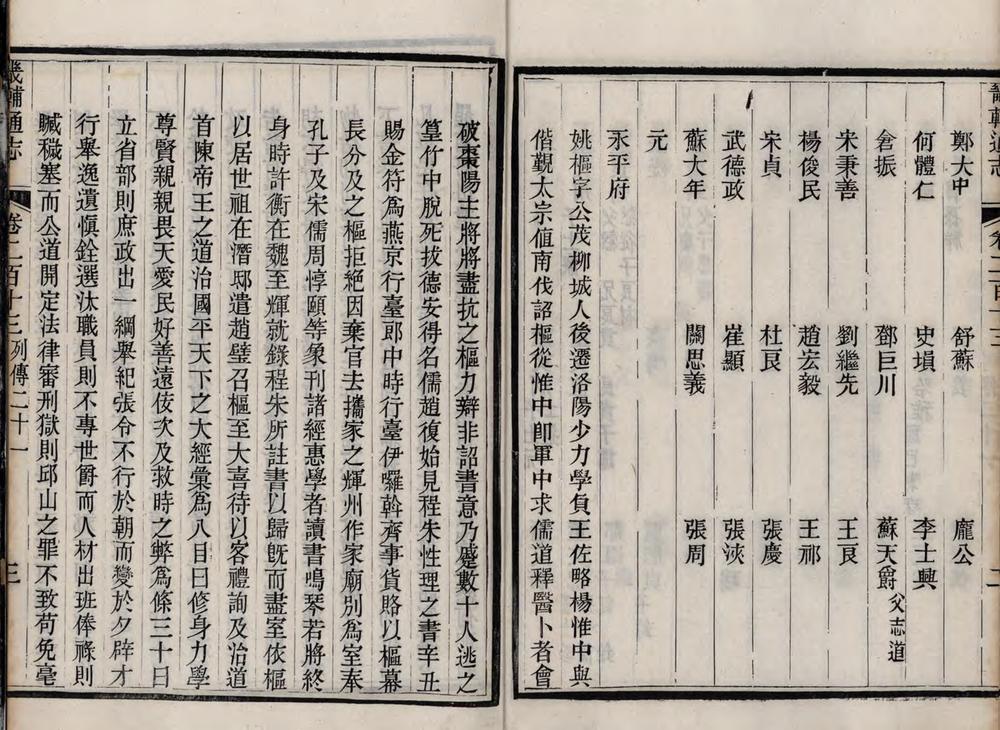 畿輔通志
鄭大中 舒蘇 龐公
何體仁 史塤 李士興
倉振 鄧巨川 蘇天爵父志道
宋秉善 劉繼先 王艮
楊俊民 趙宏毅 王祁
宋貞 杜艮 張慶
武德政 崔顯 張浹
蘇大年 關思義 張周
元
永平府
姚樞字公茂柳城人後遷洛陽少力學負王佐略楊惟中與
偕覲太宗值南伐詔樞從惟中即軍中求儒道釋醫卜者會
破棗陽主將將盡抗之樞力辯非詔書意乃蹙數十人逃之
篁竹中脫死拔德安得名儒趙復始見程朱性理之書辛丑
賜金符爲燕京行臺郎中時行臺伊囉斡齊事貨賂以樞幕
長分及之樞拒絕因棄官去攜家之輝州作家廟別爲室奉
孔子及宋儒周惇頤等象刊諸經惠學者讀書鳴琴若將終
身時許衡在魏至輝就錄程朱所註書以歸旣而盡室依樞
以居世祖在潛邸遣趙璧召樞至大喜待以客禮詢及治道
首陳帝王之道治國平天下之大經彙爲八目曰修身力學
尊賢親親畏天愛民好善遠佞次及救時之弊爲條三十曰
立省部則庶政出一綱舉紀張令不行於朝而變於夕辟才
行舉逸遺愼銓選汰職員則不專世爵而人材出班俸祿則
贓穢塞而公道開定法律審刑獄則邱山之罪不致苟免毫
畿輔通志 卷二百十三 列傳二十一 三